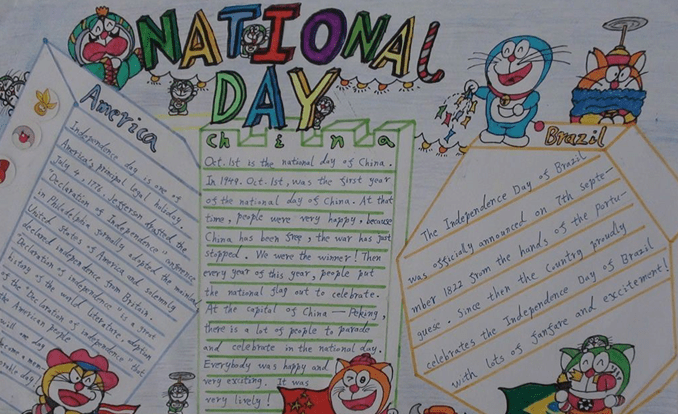 NATIONAL
DAY
America
Independence day is one of
America's principal legal holiday
July 4, 1776. Jefferson drafted the
"Declaration of Independence" conference
in Philadelphia formally adopted the mainly
United States of America and solemnly
declared independence from Britain.
Declaration of independence" is a
history of the world literature, adoption
of the Declaration of independence" that
the American people
will one day
become a
day!
China
Oct. 1st is the national day of China.
In 1949. Oct. 1st, was the first year
of the national day of China. At that
time, people were very happy, because
China has been , the war has just
stopped. We were the winner! Then
every year of this year, people put
the national flag out to celebrate.
At the capital of China — Peking,
there is a lot of people to parade
and celebrate in the national day.
Everybody was happy and
very exciting. It was
very lively!
Brazil
The Independence Day of Brazil
was officialy announced on 7th septe-
mber 1822 from the hands of the Portu-
guese. since then the Country proudly
celebrates the Independence Day of Brazil
with lots of fanfare and excitement!